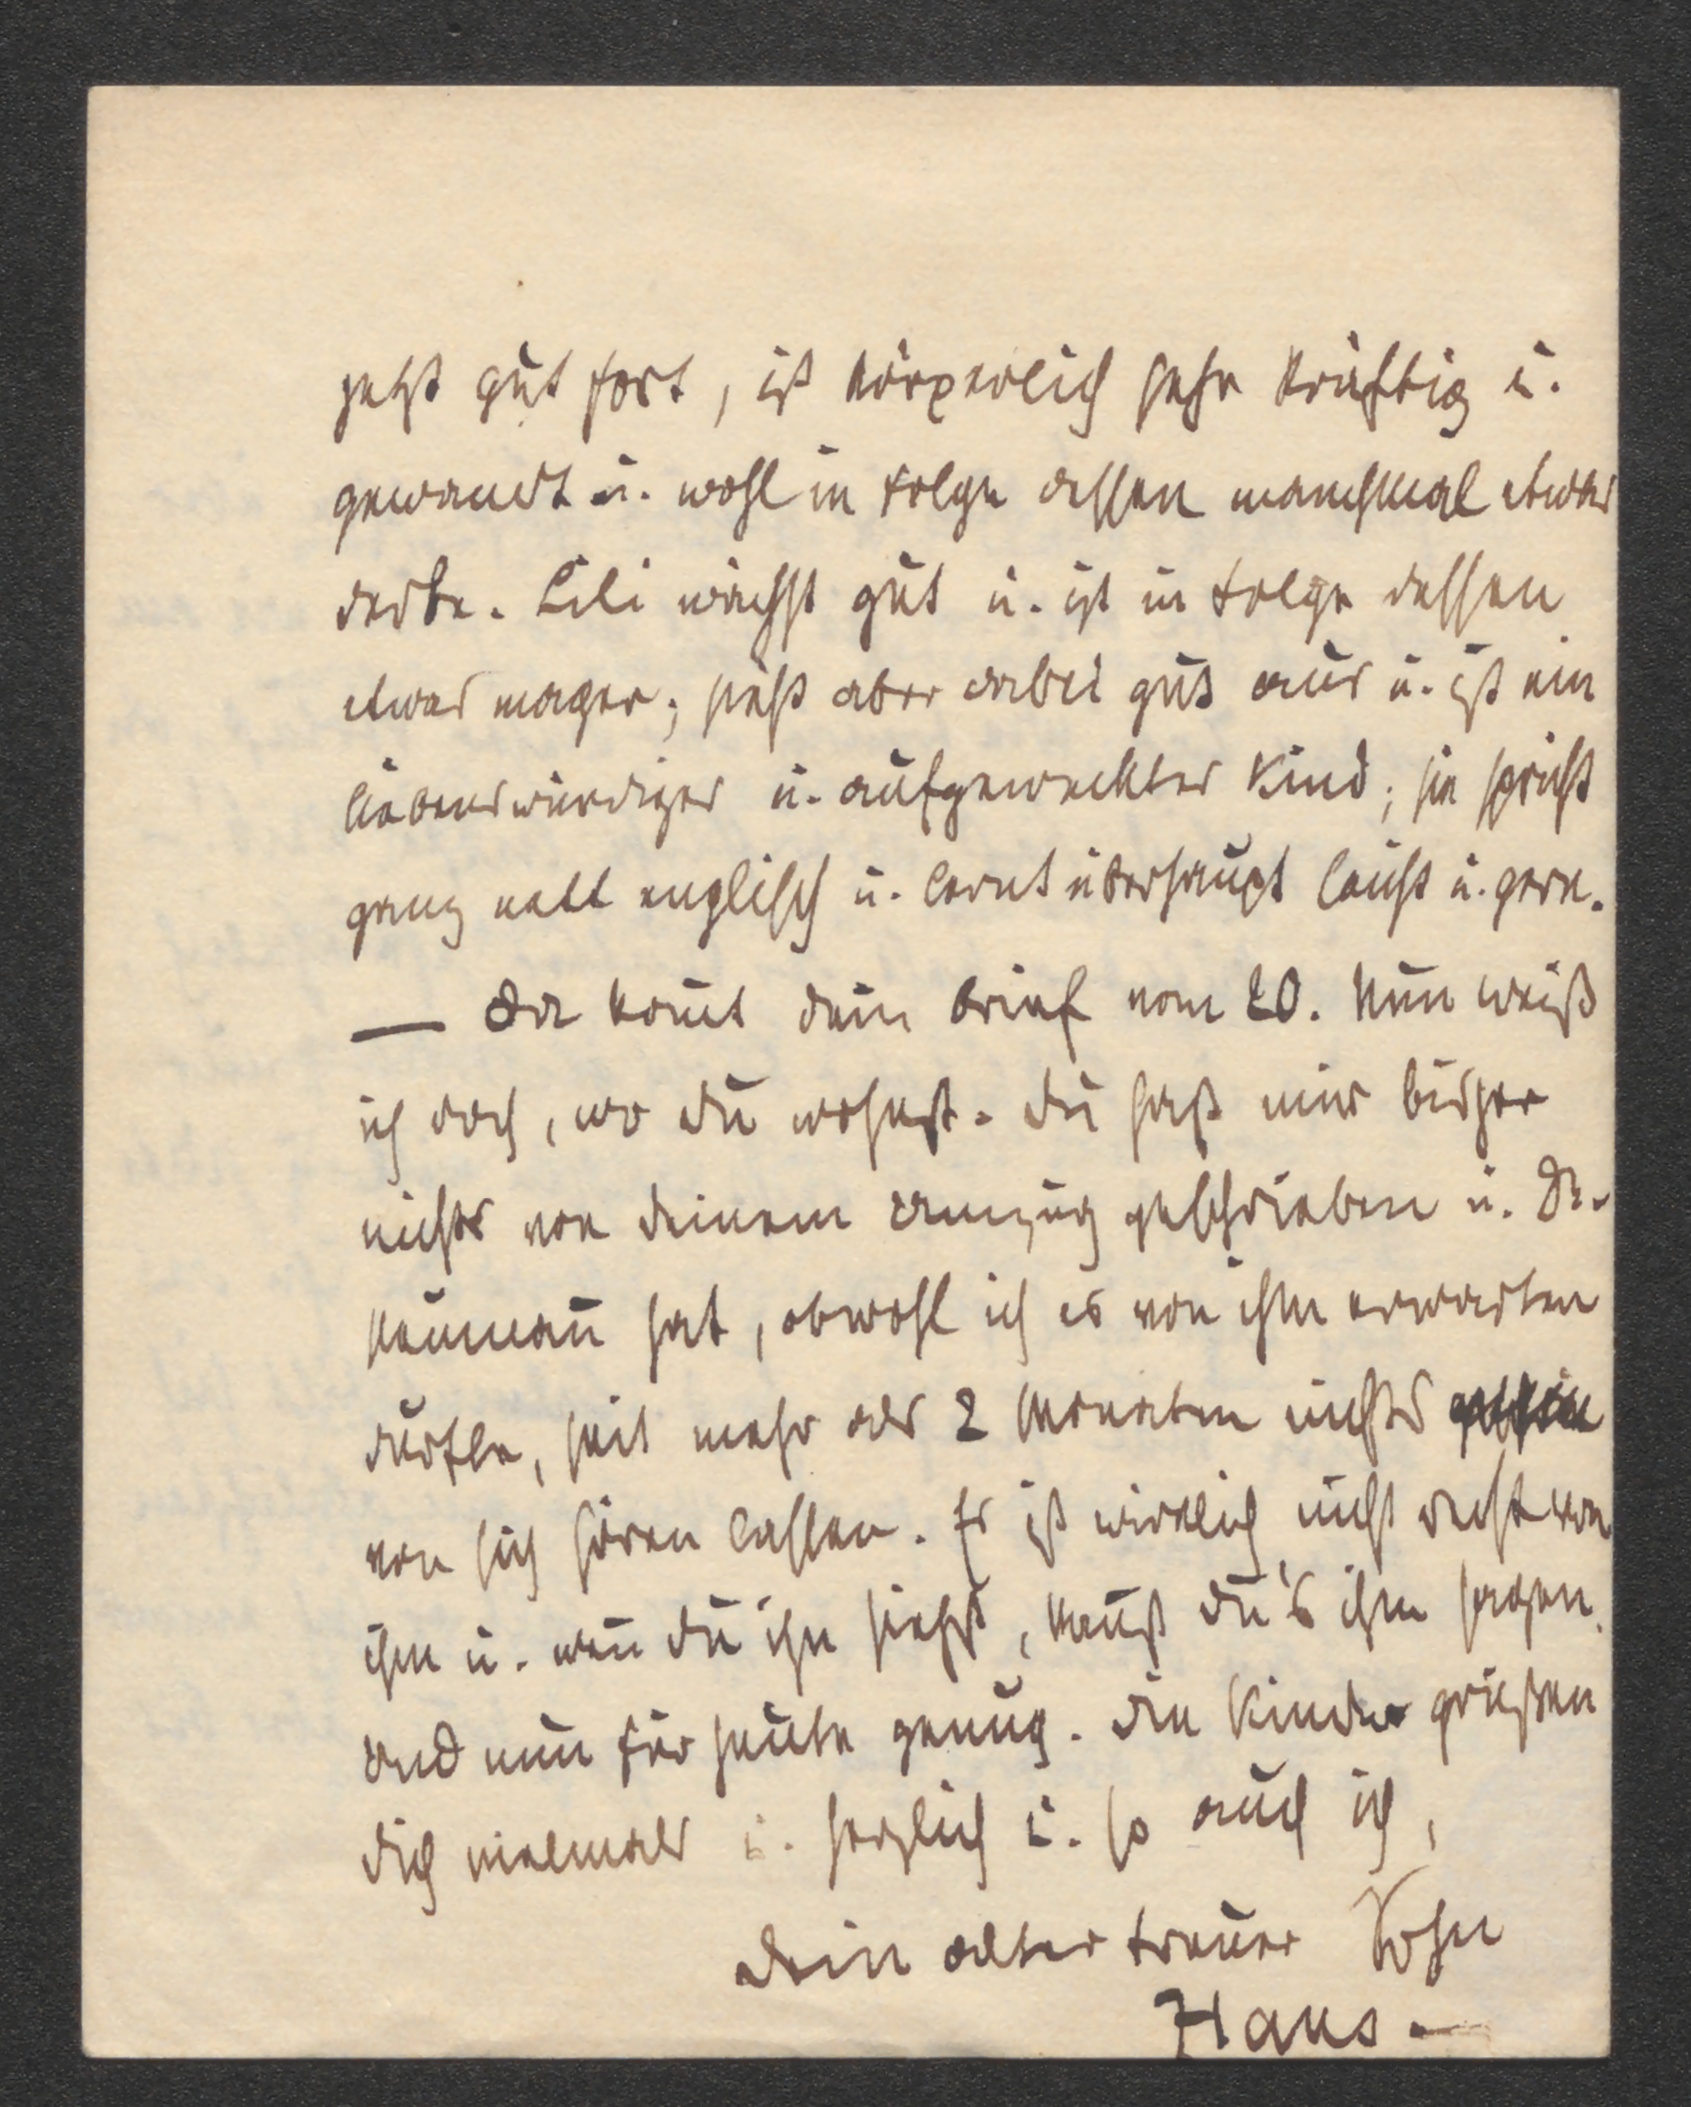 jetzt gut fort, ist körperlich sehr kräftig u.
gewandt u. wohl in Folge dessen manchmal etwas
derbe. Lili wächst gut u. ist in Folge dessen
etwas mager; sieht aber dabei gut aus u. ist ein
liebenswürdiges u. aufgewecktes Kind; sie spricht
ganz nett englisch u. lernt überhaupt leicht u. gern.
— Da kom̄t dein Brief vom 20. Nun weiß
ich doch, wo du wohnst. Du hast mir bisher
nichts von deinem Umzug geschrieben u. Dr.
Neuman̄ hat, obwohl ich es von ihm erwarten
durfte, seit mehr als 2 Monaten nichts
von sich hören lassen. Es ist wirklich nicht recht von
ihm u. wen̄ du ihn siehst, kan̄st du's ihm sagen.
Und nun für heute genug. Die Kinder grüßen
dich vielmals u. herzlich u. so auch ich,
dein alter treuer Sohn
Hans.